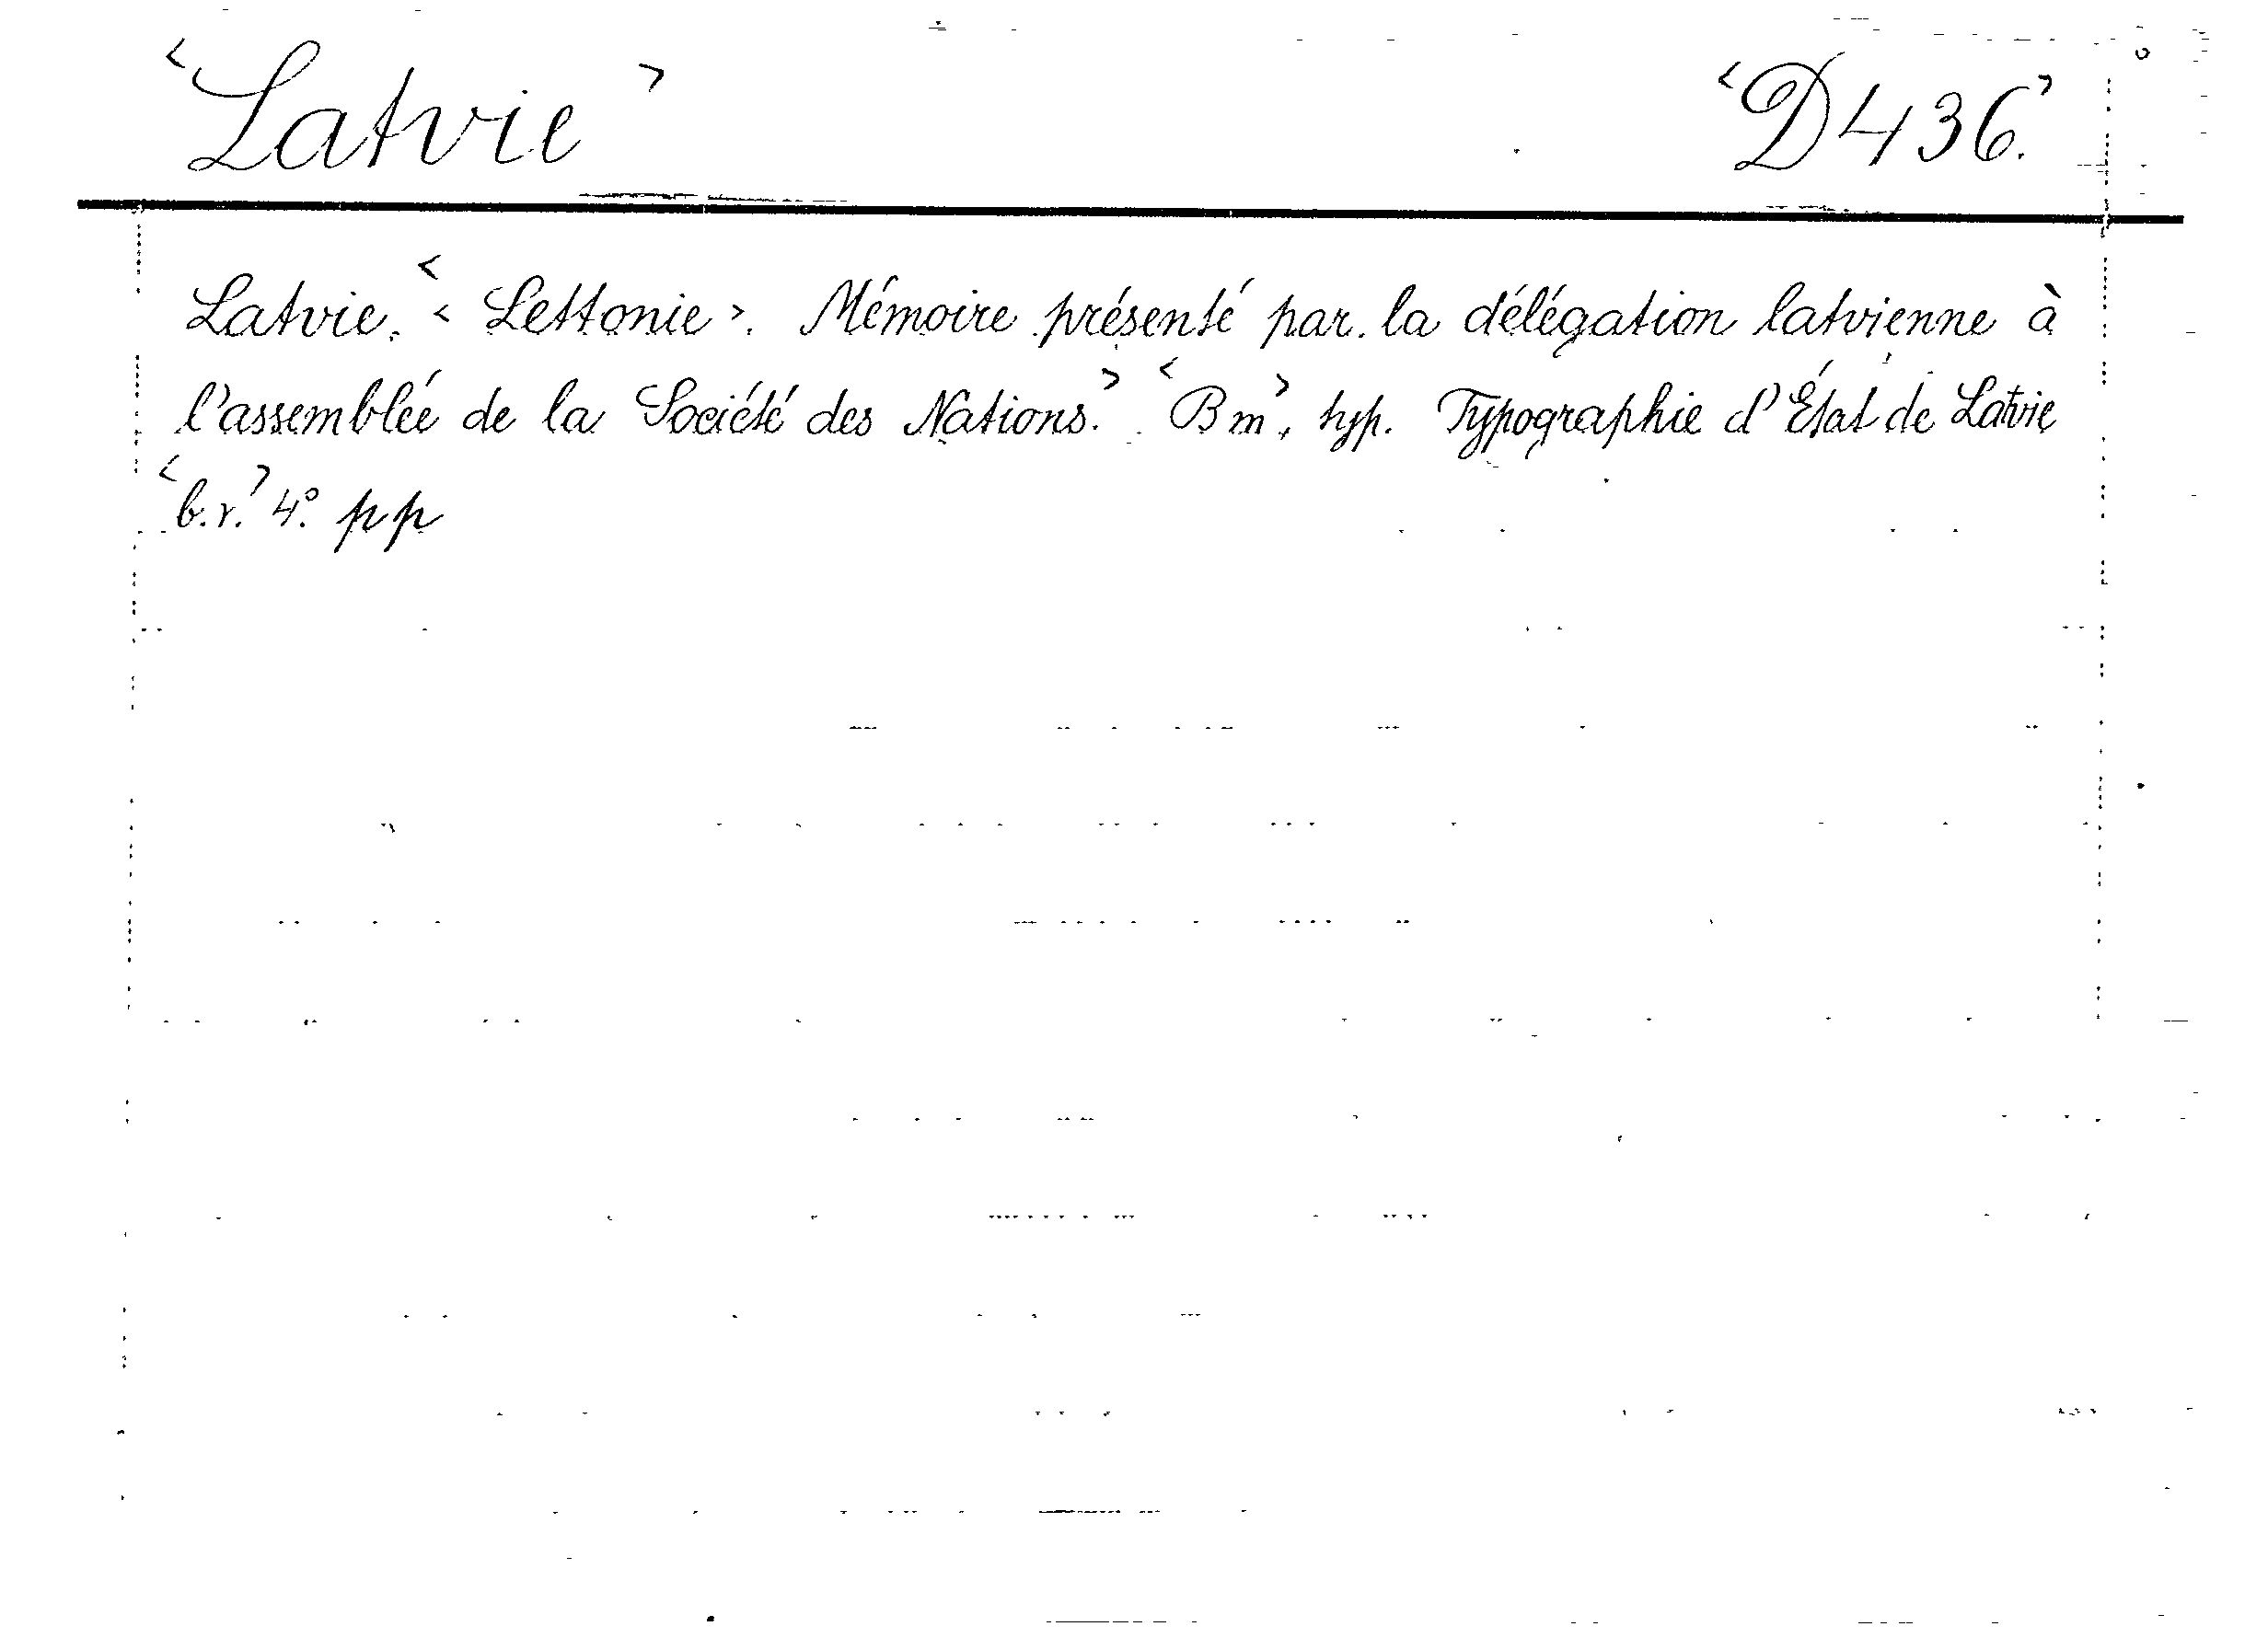 <Latvie> <D436.>
Latvie. < <Lettonie>. Mémoire présenté par la délégation latvienne à
l'assemblée de la Société des Nations.> <Bm>, typ. Typographie d'État de Latvie
<b.r.> 4º pp